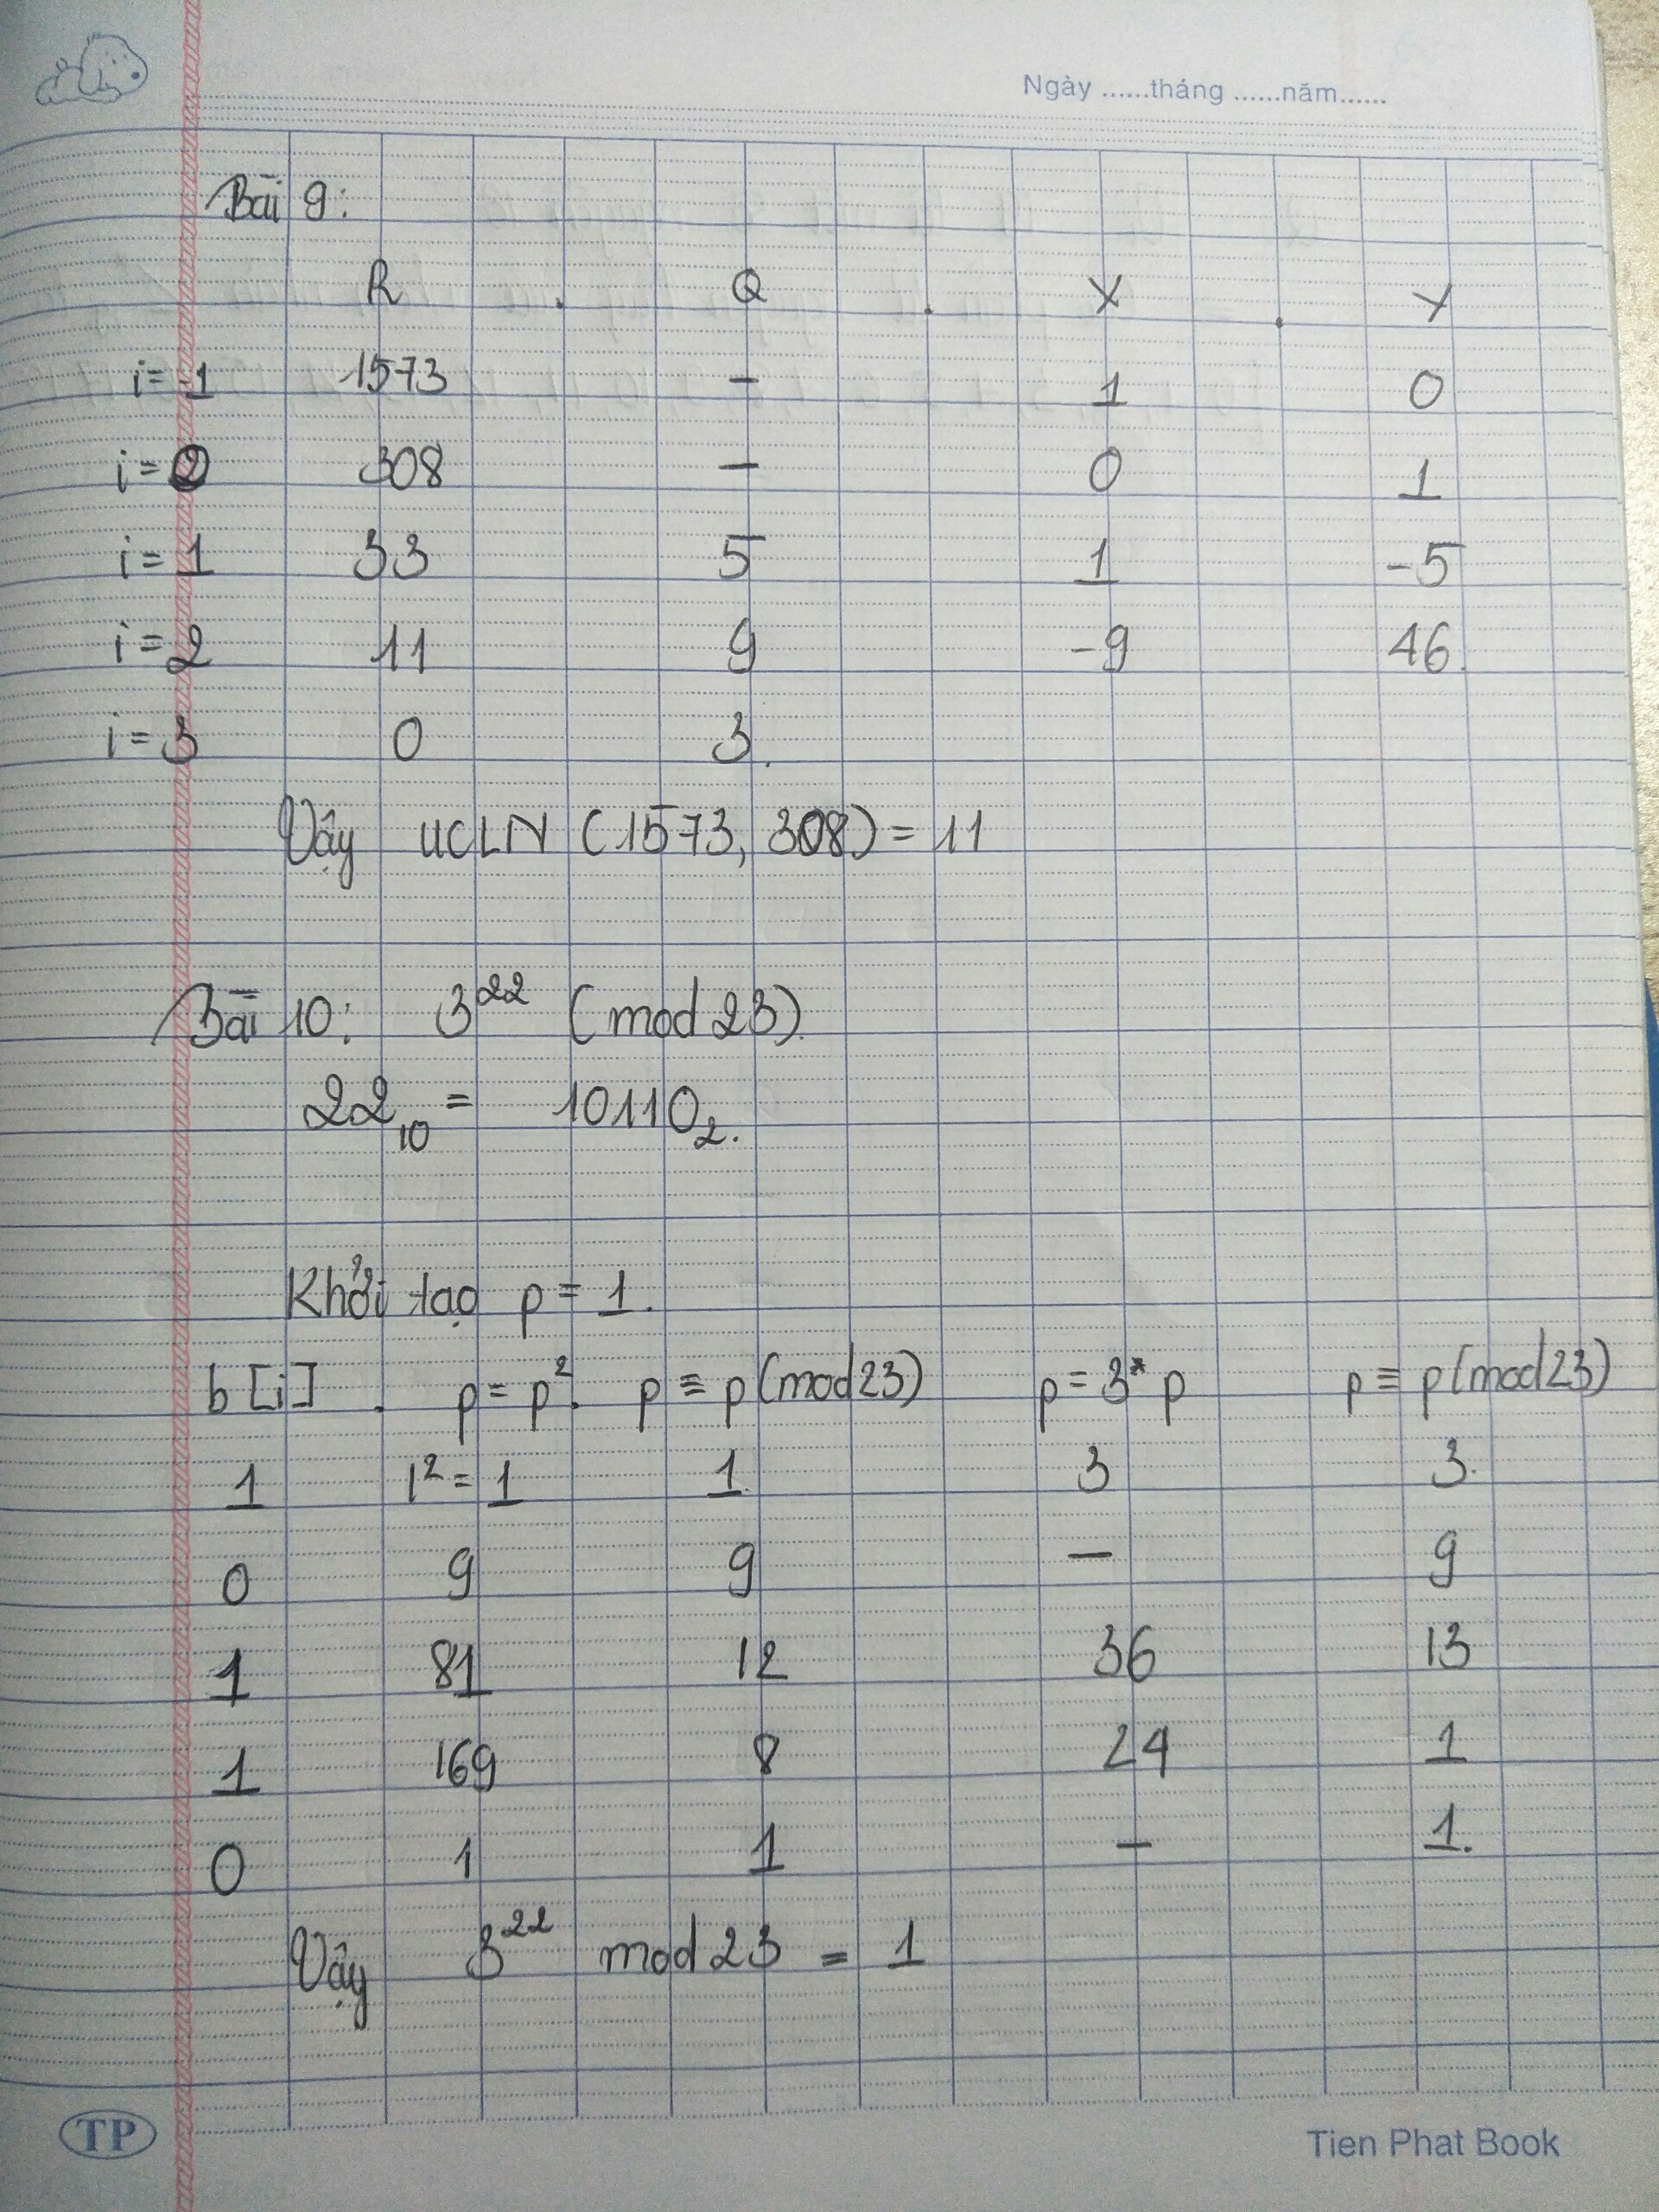 Ngày ......tháng ......năm......
Bài 9:
R Q X Y
i = -1 1573 – 1 0
i = 0 308 – 0 1
i = 1 33 5 1 -5
i = 2 11 9 -9 46.
i = 3 0 3.
Vậy UCLN (1573, 308) = 11
Bài 10: 3²² (mod 23).
22₁₀ = 10110₂.
Khởi tạo p = 1.
b[i] p = p² p ≡ p (mod 23) p = 3* p p ≡ p (mod 23)
1 1² = 1 1 3 3
0 9 9 – 9
1 81 12 36 13
1 169 8 24 1
0 1 1 – 1.
Vậy 3²² mod 23 = 1
TP Tien Phat Book